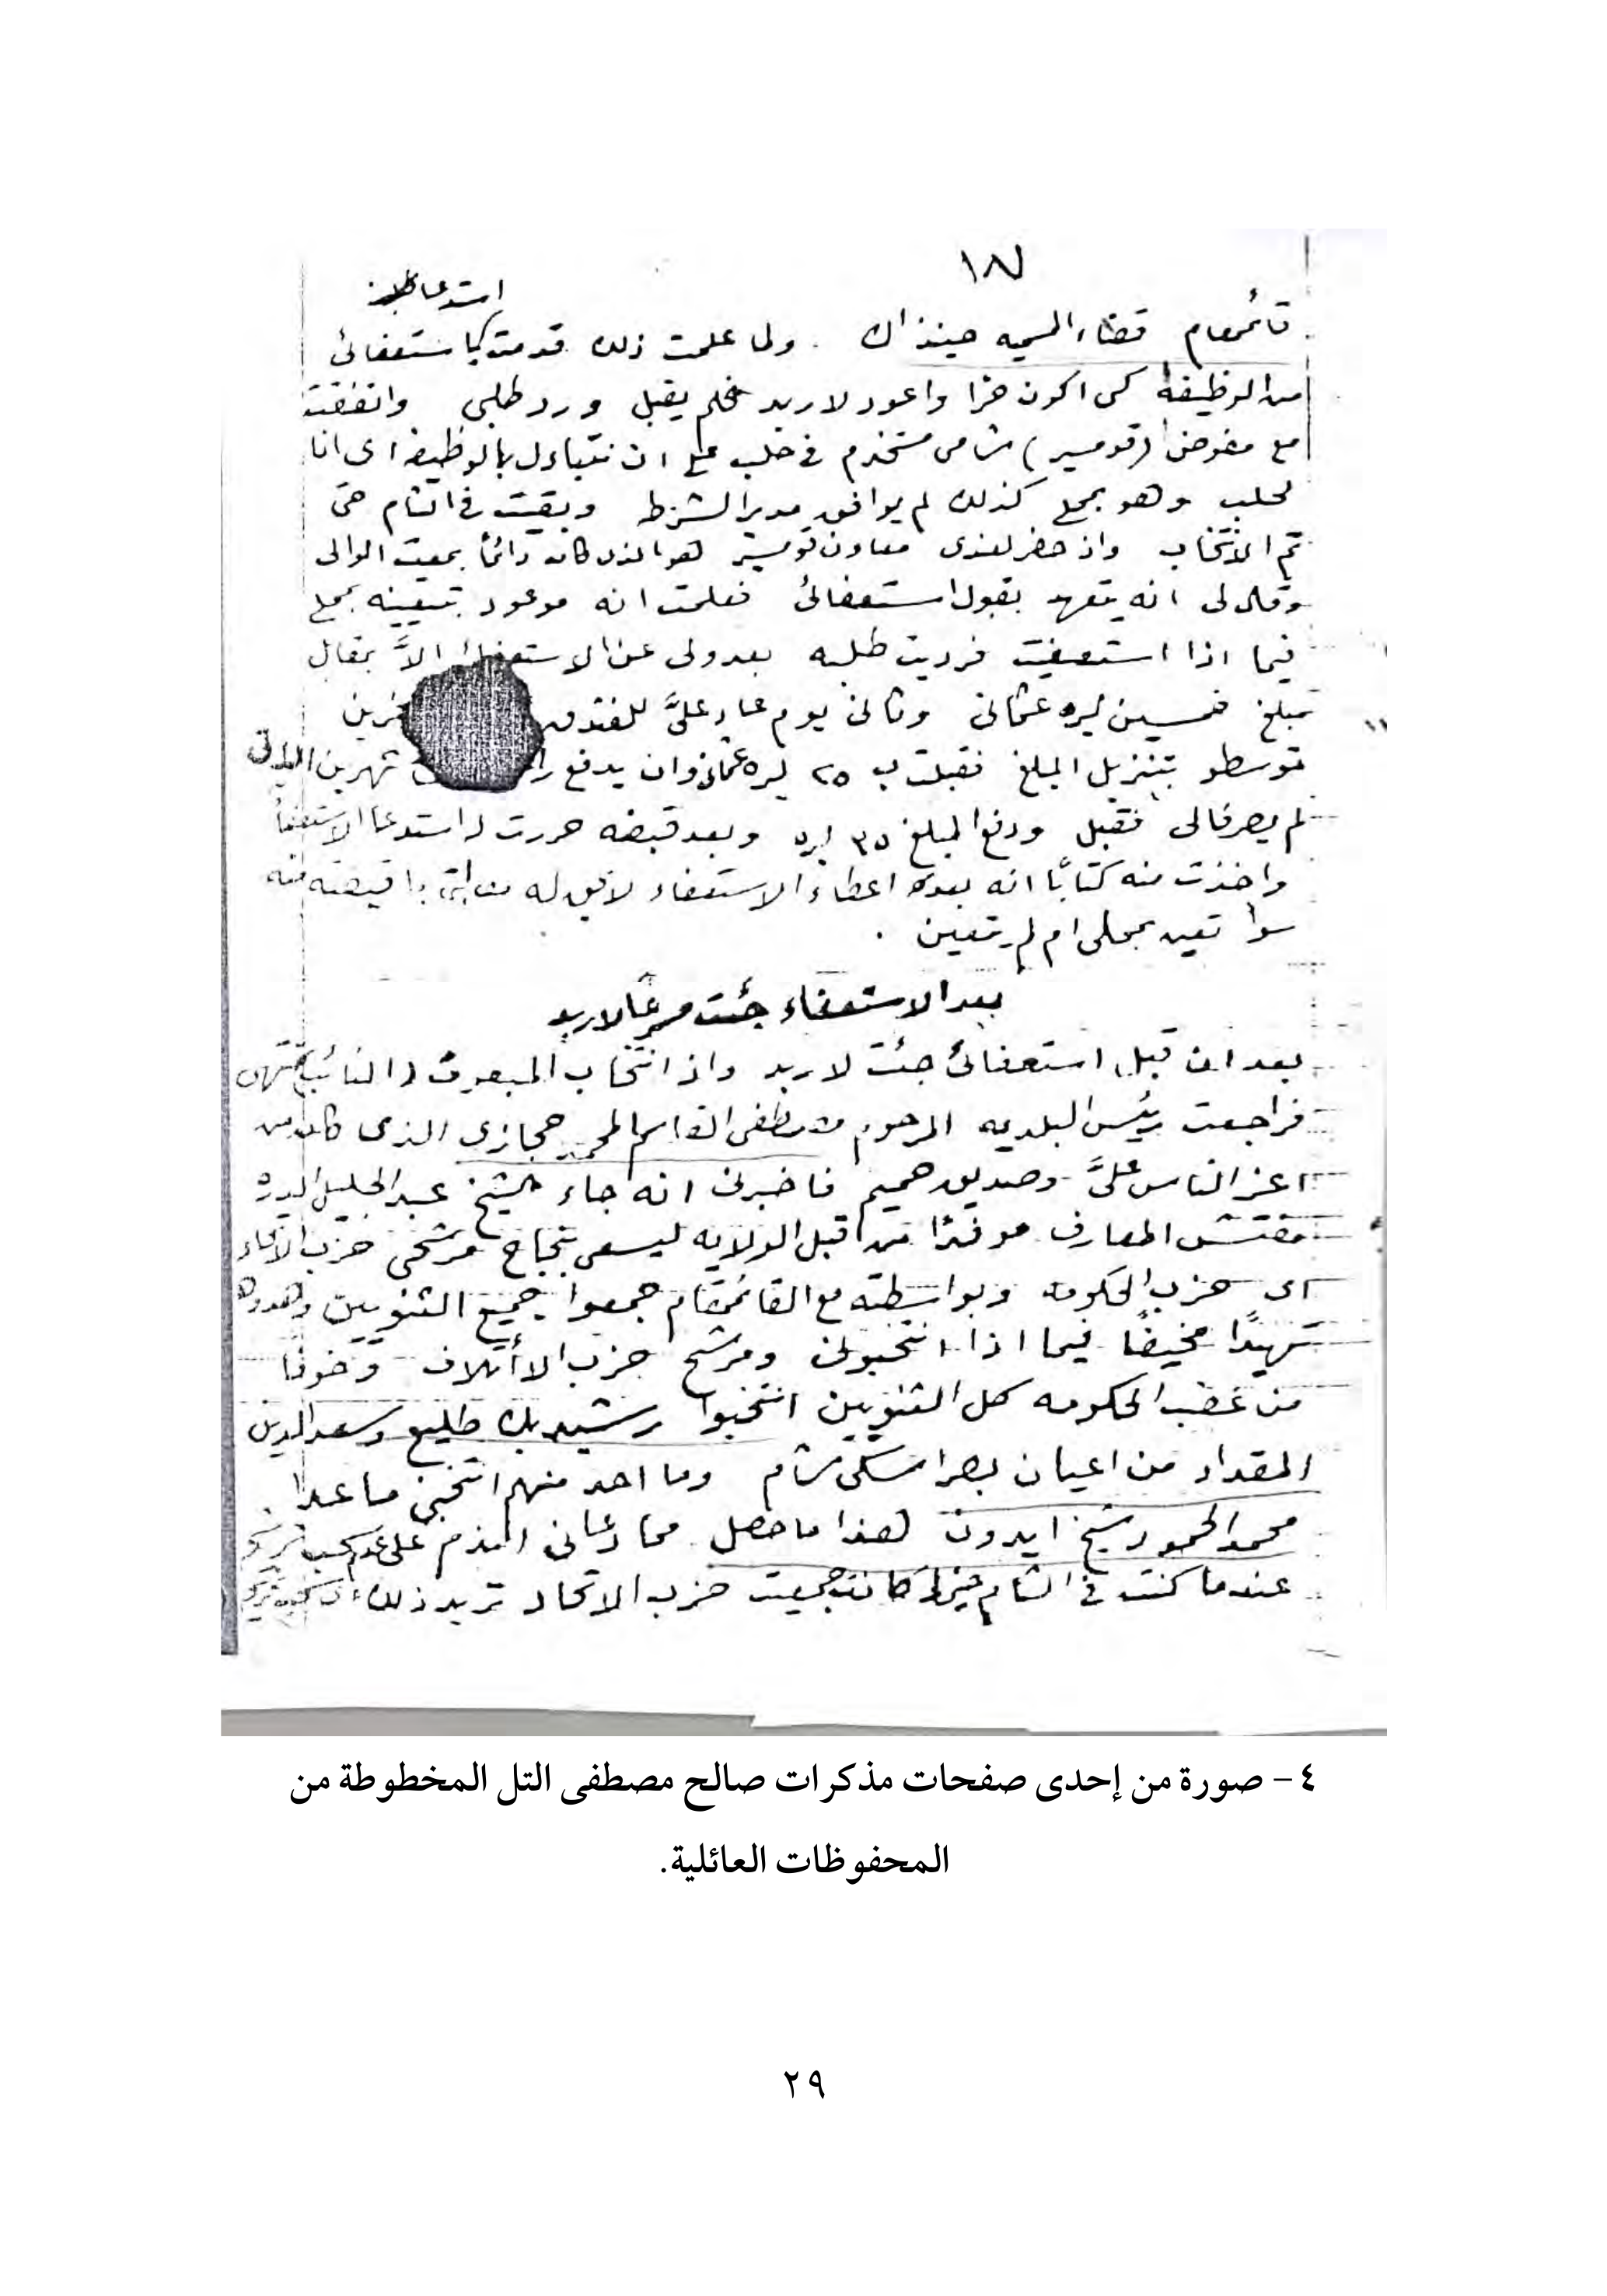 ١٨٧
استدعا
قائمقام قضاء المسميه حينذاك . ولما علمت ذلك قدمت باستعفائي
من الوظيفه كى اكون حرا واعود لاربد فلم يقبل ورد طلبي واتفقت
مع مفوض (قومسير) شامي مستخدم في حلب على ان نتبادل بالوظيفه اى انا
لحلب وهو بمحلي كذلك لم يوافق مدير الشرطه وبقيت في الشام حتى
تم الانتخاب واذ حضر لعندى معاون قومسير هو الذى كان دائماً بمعيت الوالى
وقال لى انه يتعهد بقبول استعفائي فعلمت انه موعود بتعيينه بمحلي
فيما اذا استعفيت فرديت طلبه بعدولى عن الاستعفاء الاَّ بمقابل
مبلغ خمسين ليره عثمانى وثانى يوم عاد علىَّ للفندق
توسطو بتنزيل المبلغ فقبلت ب ٢٥ ليره عثمانى وان يدفع شهرين
لم يصرفا لى فقبل ودفع المبلغ ٣٥ ليره وبعد قبضه حررت له استدعا الاستعفا
واخذت منه كتاباً انه بعد اعطاء الاستعفاء لا يحق له قبضته منه
سوا تعين بمحلى ام لم يتعين .
بعد الاستعفاء جئت مسرعًا لاربد
بعد ان قبل استعفائي جئت لاربد واذ انتخاب المبعوث (النائب) منتهى
فراجعت رئيس البلديه المرحوم مصطفى القاسم المحمد حجازى الذى كان من
اعز الناس علىَّ وصديق حميم فاخبرنى انه جاء الشيخ عبد الجليل الدره
مفتش المعارف موفدًا من قبل الولايه ليسعى بنجاح مرشحى حزب الاتحاد
اى حزب الحكومه وبواسطته مع القائمقام جمعوا جميع الثنويين وهددوهم
تهديدًا مخيفًا فيما اذا انتخبونى ومرشح حزب الأأتلاف وخوفًا
من غضب الحكومه كل الثنويين انتخبوا رشيد بك طليع وسعد الدين
المقداد من اعيان بصرا سكى شام وما احد منهم انتخبنى ما عدا
محمد الحمود شيخ ايدون هذا ما حصل مما دعانى اندم على عدم
عندما كنت في الشام كانت جمعيت حزب الاتحاد تريد ذلك
٤ - صورة من إحدى صفحات مذكرات صالح مصطفى التل المخطوطة من
المحفوظات العائلية.
٢٩